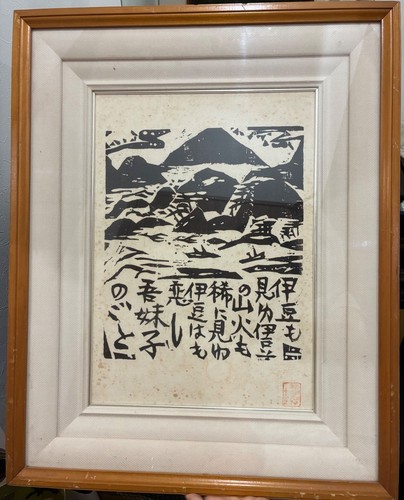 伊豆も
見ゆ伊豆
の山火も
稀に見ゆ
伊豆はも
恋し
吾妹子
のごとに